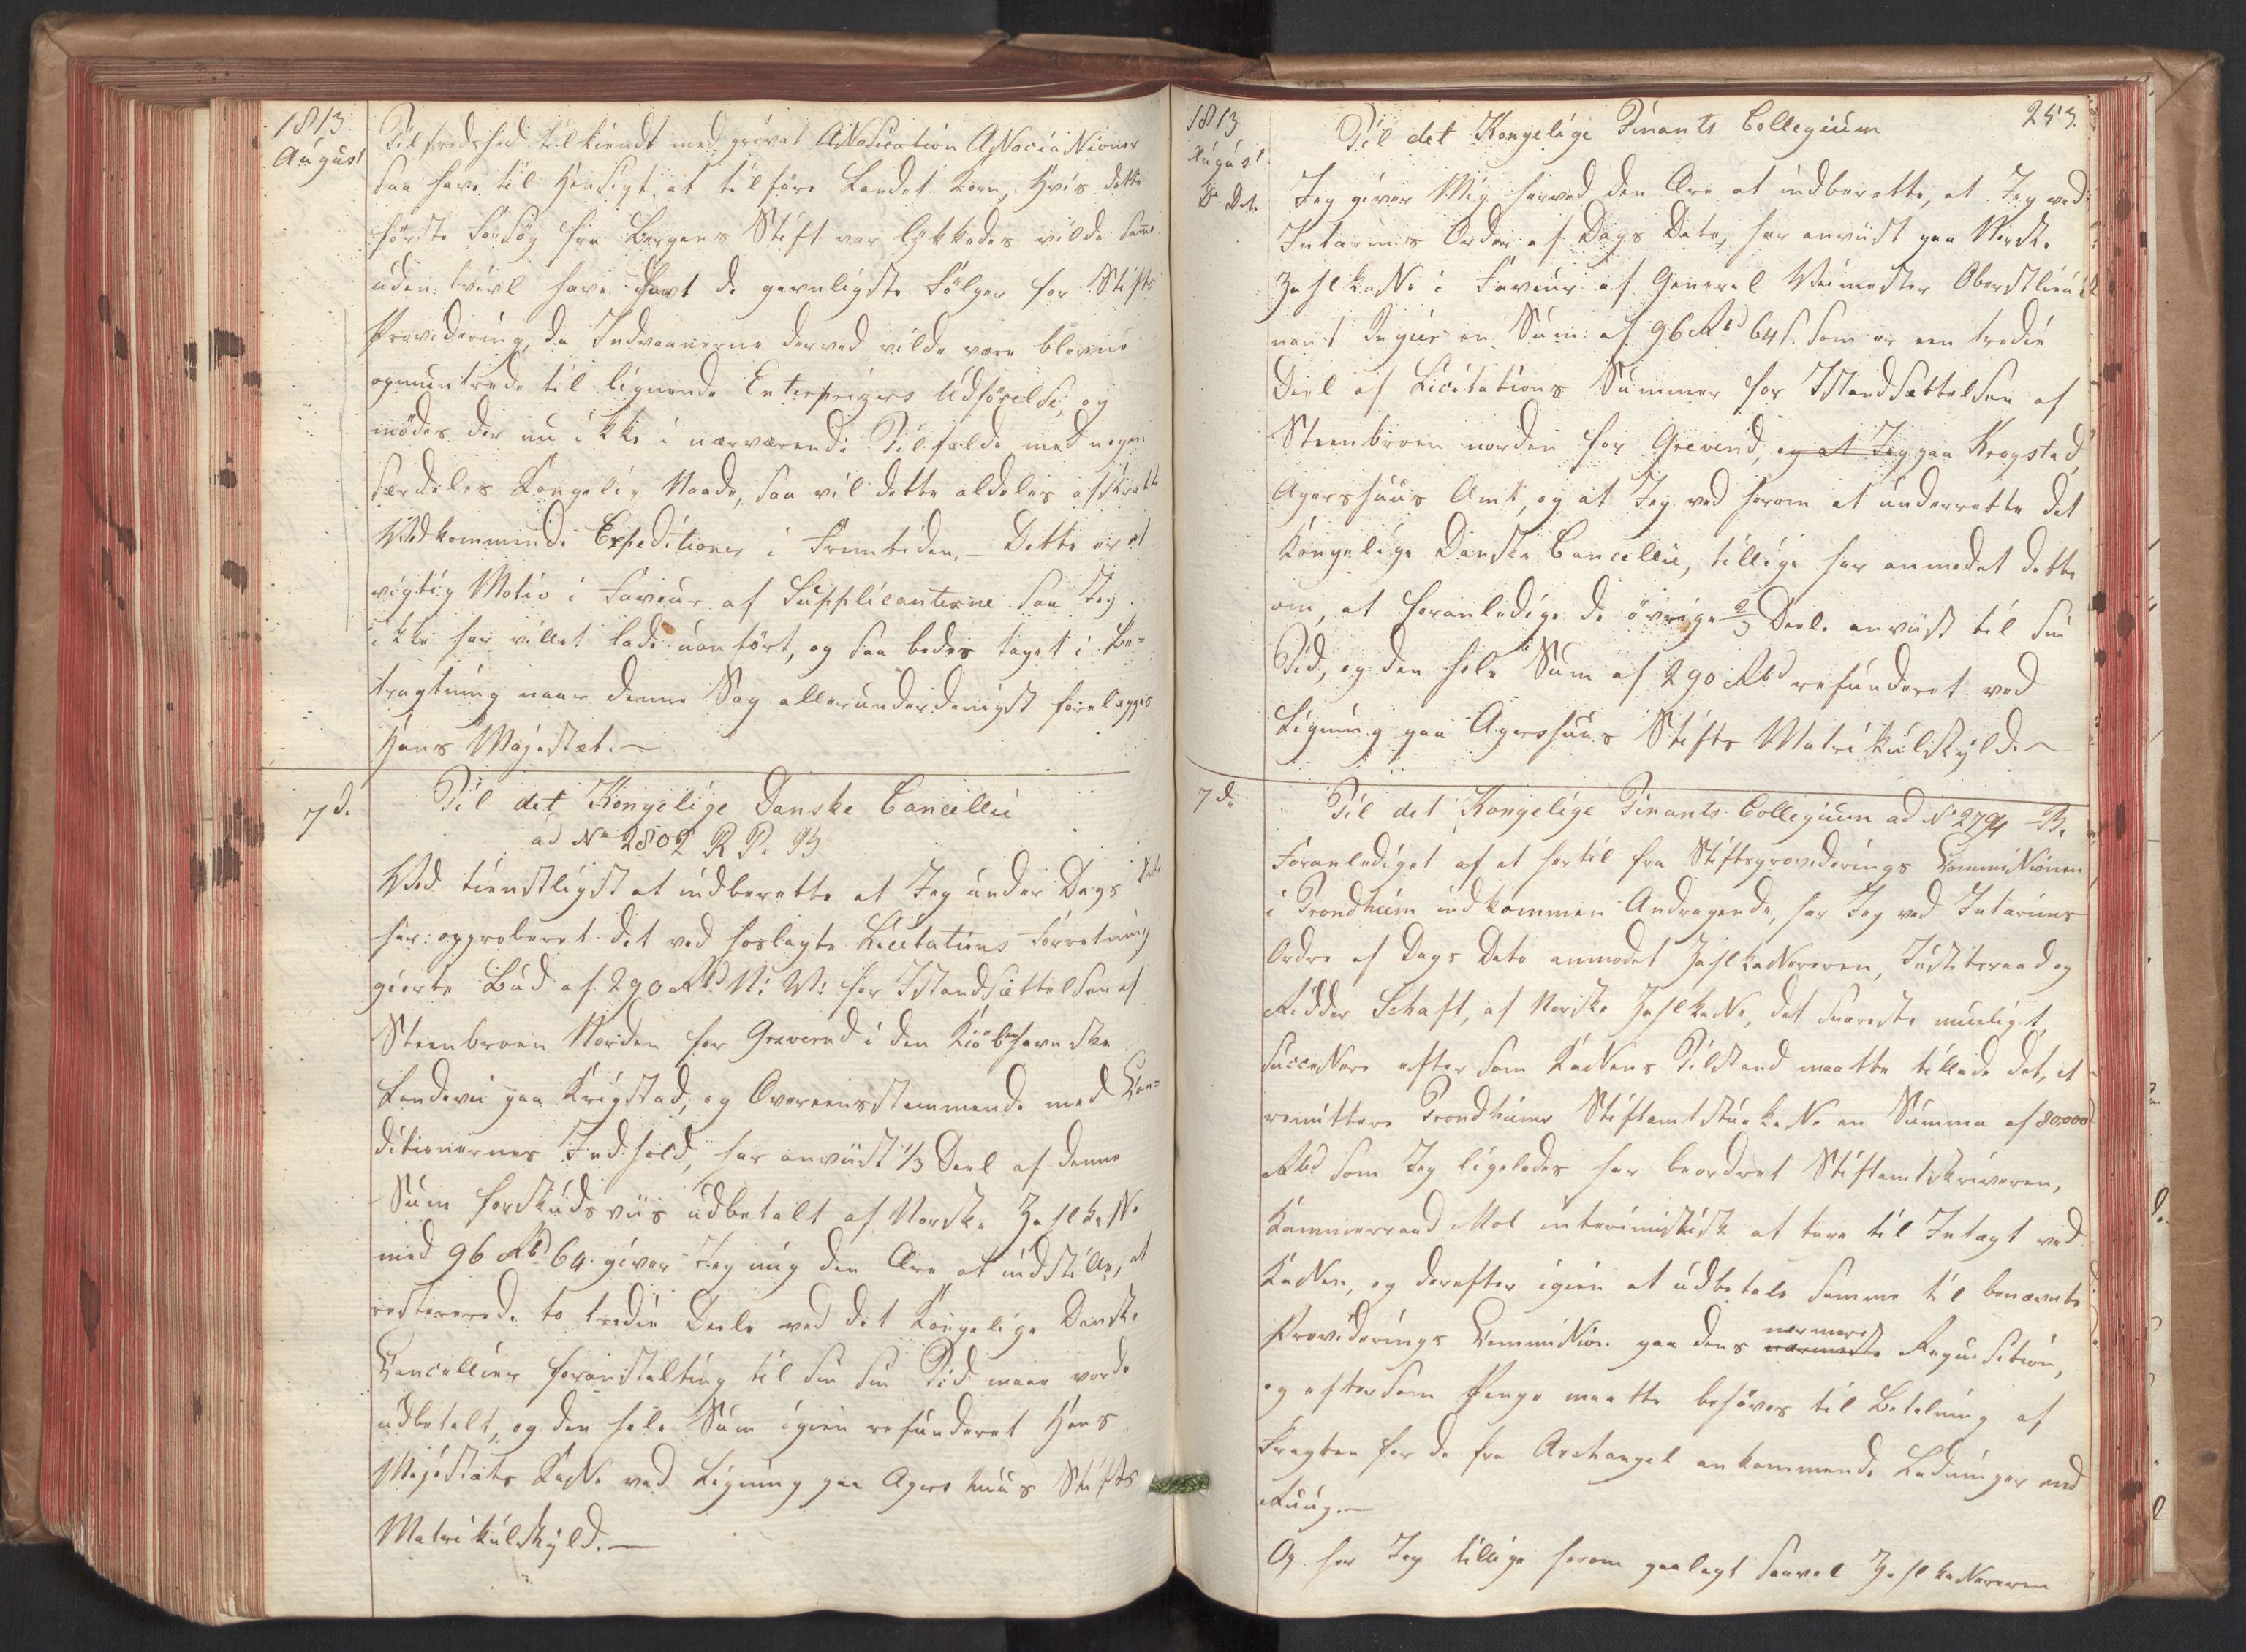 1813
August
Tilfredshed tilkiendt med privat Association Associationer
saa have til Hensigt at tilföre Landet Korn, Hvis dette
förste Forsög fra Bergens Stift var lykkedes vilde samme
uden tvivl have havt de gavnligste Fölger for Stiftets
Providering, da Indvaanerne derved vilde være blevne
opmuntrede til lignende Enterprizers Udförelse, og
mödes der nu ikke i nærværende Tilfælde med nogen
særdeles Kongelig Naade, saa vil dette aldeles afskrække
Vedkommende Expeditioner i Fremtiden. – Dette er et
vigtig Motiv i Faveur af Supplicanterne saa Jeg
ikke har villet lade uanfört, og saa bedes taget i Be=
tragtning naar denne Sag allerunderdanigst forelægges
Hans Majestæt. –
7 d.
Til det Kongelige Danske Cancellie
ad No 2802 R P. 13
Ved tienstligst at indberette at Jeg under Dags Dato
har approberet det ved hoslagte Licitations Forretning
giorte Bud af 290 Rbd N: V: for Istandsættelsen af
Steenbroen Norden for Greverud i den Kiöbenhavnske
Landevei paa Krigstad, og Overeensstemmende med Con=
ditionernes Indhold, har anviist 1/3 Deel af denne
Sum forskudsviis udbetalt af Norske Zahlkasse
med 96 Rbd 64. giver Jeg mig den Ære at indstille, at
resterende to tredie Deele ved det Kongelige Danske
Cancellies foranstalting til sin sin Tid maae vorde
udbetalt, og den hele Sum igien refunderet Hans
Majestæts Kasse ved Ligning paa Agershuus Stifts
Matrikulskyld. –
1813
August
D. Dt.
253.
Til det Kongelige Finants Collegium
Jeg giver Mig herved den Ære at indberette, at Jeg ved
Interims Ordre af Dags Dato, har anviist paa Norske
Zahlkasse i Faveur af General Veimester Oberstlieut
nant en Sum af 96 Rbd 64 s. som er een tredie
Deel af Licitations Summer for Istandsættelsen af
Steenbroen norden for Greverud, og at Jeg paa Krogstad,
Agershuus Amt, og at Jeg ved herom at underrette det
Kongelige Danske Cancellie, tillige har anmodet dette
om, at foranledige de övrige 2/3 Deele anviist til sin
Tid, og den hele Sum af 290 Rbd refunderet ved
Ligning paa Agershuus Stifts Matrikulskyld. –
7 de
Til det Kongelige Finants Collegium ad No 2794 B.
Foranlediget af et hertil fra Stiftsproviderings Commissionen
i Trondhiem indkommen Andragende, har Jeg ved Interims
Ordre af Dags Dato anmodet Zahlkassereren, Justitsraad og
Ridder Schaft, af Norske Zahlkasse, det snareste mueligt,
successive efter som Kassens Tilstand maatte tillade det, at
remittere Trondhiems Stiftamtstuekasse en Summa af 80,000
Rbd som Jeg ligeledes har beordret Stiftamtskriveren,
Kammerraad Mol interimistisk at tage til Indtægt ved
Kassen, og derefter igien at udbetale samme til benævnte
Providerings Commission paa dens nærmeste nærmere Requisition,
og eftersom Penge maatte behöves til Betalning af
Fragten for de fra Archangel ankommende Ladninger med
Ruug. –
Og har Jeg tillige herom paalagt saavel Zahlkassereren